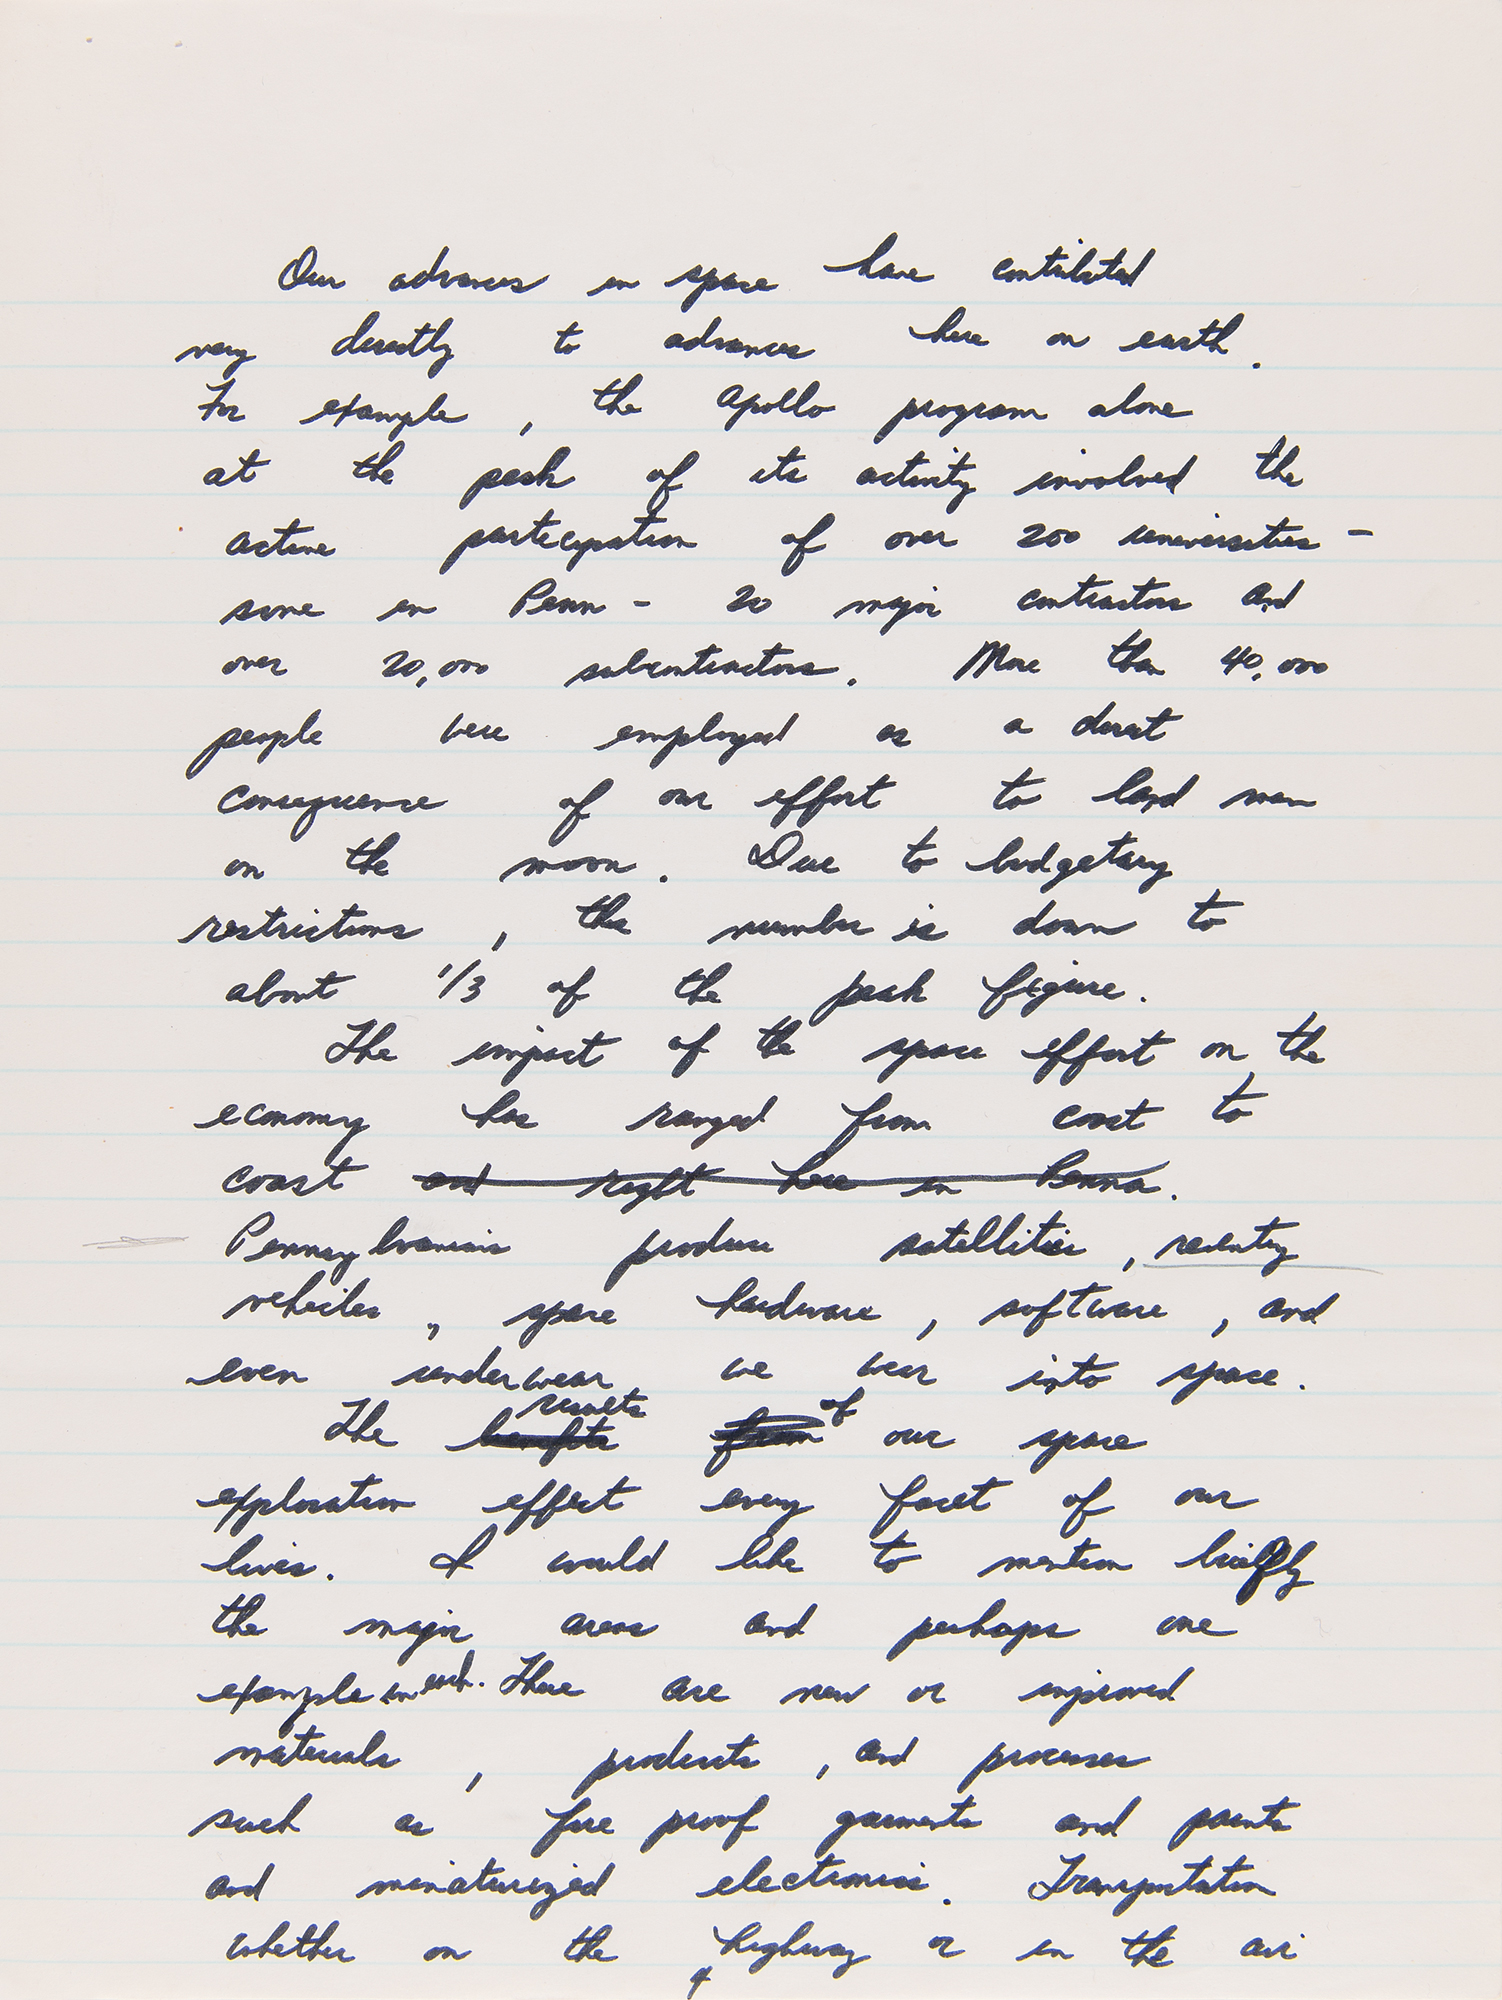 Our advances in space have contributed
very directly to advances here on earth.
For example, the Apollo program alone
at the peak of its activity involved the
active participation of over 200 universities -
some in Penn - 20 major contractors and
over 20,000 subcontractors. More than 40,000
people were employed as a direct
consequence of our effort to land men
on the moon. Due to budgetary
restrictions, the number is down to
about 1/3 of the peak figure.
The impact of the space effort on the
economy has ranged from coast to
coast and right here in Penna.
Pennsylvanians produce satellites, reentry
vehicles, space hardware, software, and
even underwear we wear into space.
results of
The benefits from our space
exploration effect every facet of our
lives. I would like to mention briefly
the major areas and perhaps one
example in each. There are new or improved
materials, products, and processes
such as fire proof garments and paints
and miniaturized electronics. Transportation
whether on the highway or in the air